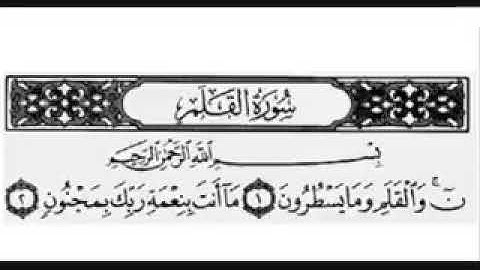 سُورَةُ الْقَلَمِ
بِسْمِ اللَّهِ الرَّحْمَٰنِ الرَّحِيمِ
نٓ ۚ وَالْقَلَمِ وَمَا يَسْطُرُونَ ١ مَا أَنتَ بِنِعْمَةِ رَبِّكَ بِمَجْنُونٍ ٢